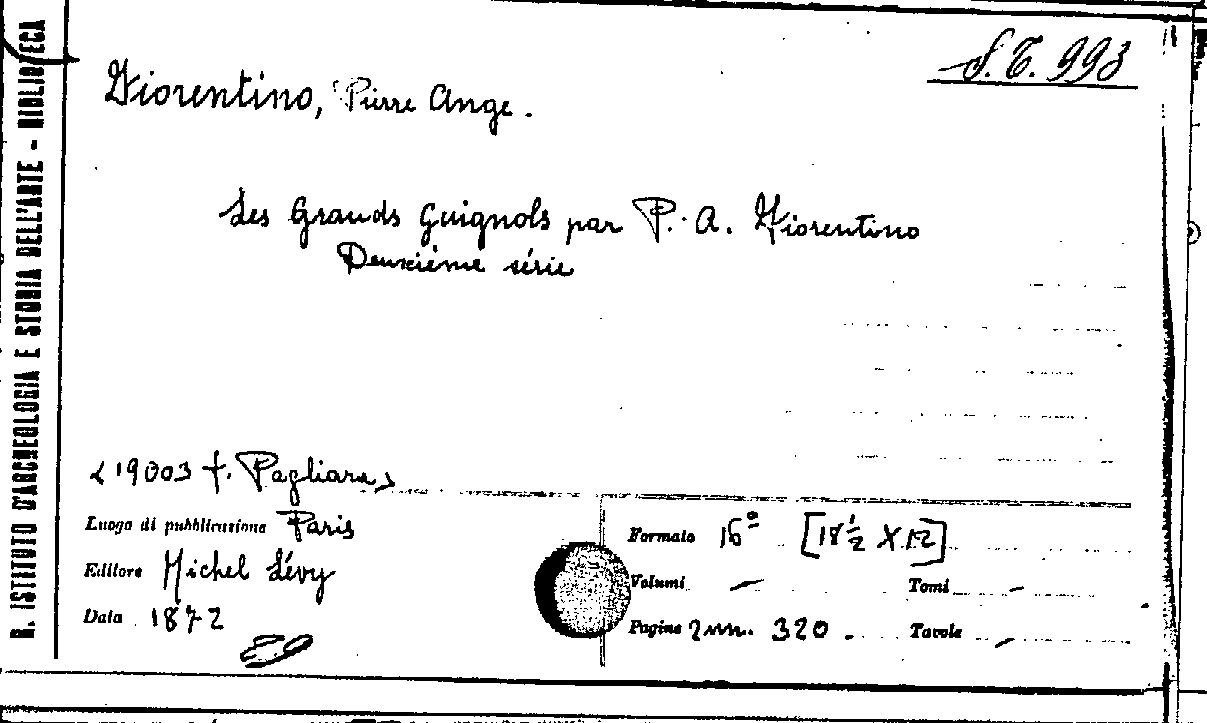 R. ISTITUTO D'ARCHEOLOGIA E STORIA DELL'ARTE - BIBLIOTECA
S.T. 993
Fiorentino, Pierre Ange.
Les Grands Guignols par P. A. Fiorentino
Deuxième série
<19003 f. Pagliara>
Luogo di pubblicazione Paris
Formato 16º [18½ X 12]
Editore Michel Lévy
Volumi — Tomi —
Data 1872
Pagine 2 nn. 320. Tavole —